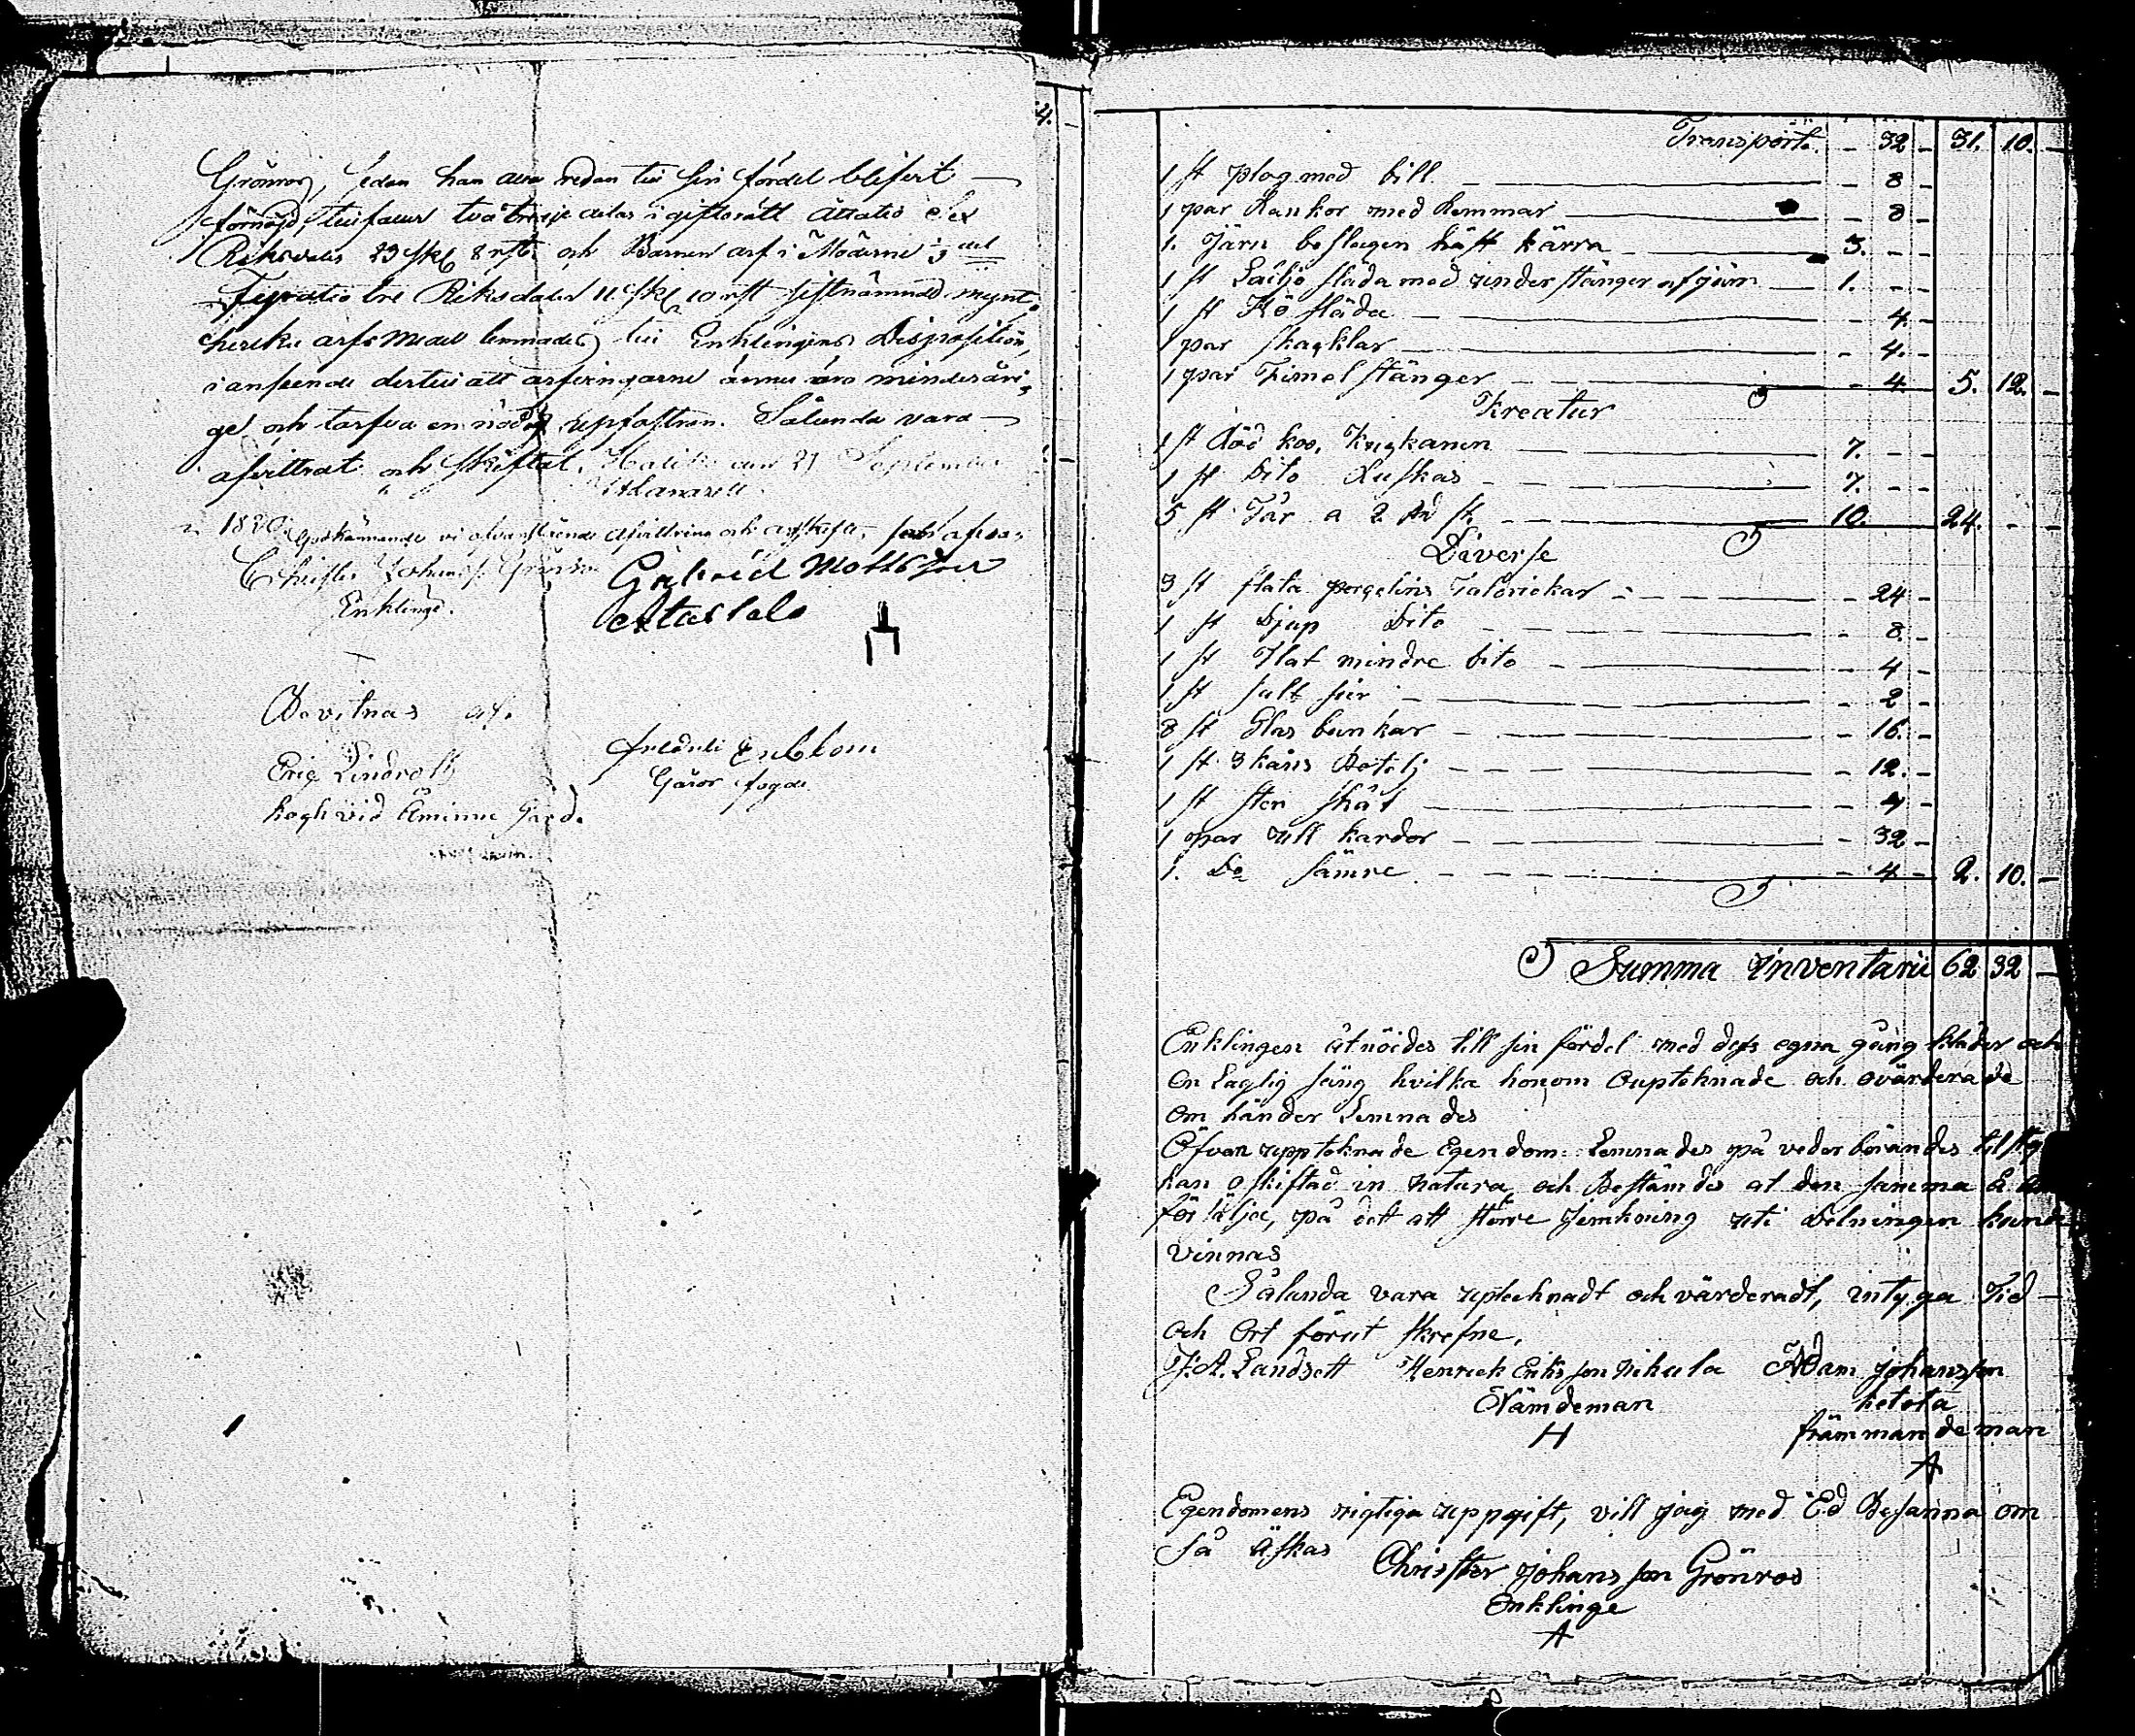 Grönros, sedan han redan till sin fördel blifvit
förnöjd, tillfaller två tredje delar i giftorätt Åttatio Sex
Riksdaler 23 sk 8 rst och Barnen arf i Möderne ⅓ del
Fyratio tre Riksdaler 11 sk 10 rst sistnämnde mynt
hvilka arfs medel lemnades till Enklingens Disposition,
i anseende dertill att arfvingarne ännu äro minderåri-
ge och tarfva en nödig uppfostran. Sålunda vara
afvittrat och skiftat, Haliko den 21 September
1820 Godkännande vi ofvanstående afvittring och arfskifte,
Christer Johans. Grönros Gabriel Mattsson
Enklinge.
Bevitnas af.
Eric Lindroth Enblom
vid Åminne Gård. Gårds fogde
4.
Transport. - 32 - 31. 10. -
1 st plog med bill - 8 -
1 par Rankor med Remmar - 8 -
1. Järn beslagen häst kärra 3. - -
1 st släda med under stänger af järn 1. - -
1 st Hö släda - 4 -
1 par skacklar - 4. -
1 par Timel stänger - 4 5. 12. -
Kreatur
1 st Röd koo, 7. - -
1 st Dito Ruskas 7. - -
5 st Får a 2 Rd st 10. 24. - -
Diverse
3 st flata porgelins Talrickar - 24 -
1 st Djup Dito - 8 -
1 st Flat mindre dito - 4 -
1 st salt - 2 -
8 st Glas bunkar - 16. -
1 st 3 kans Botelj - 12. -
1 st sten skåt - 4 -
1 par ull kardor - 32 -
1. Do sämre - 4 - 2. 10. -
Summa Inventarii 62 32 -
Enklingen åtnöides till sin fördel med dess egna gång kläder och
en Laglig säng hvilka honom oupteknade och ovärderade
om händer Lemnades
Öfvan uppteknade Egendom Lemnades på vederbörandes
kan oskiftad in natura och Bestämdes at den samma
försälja, på det att större jemkning uti Delningen kund
vinnas
Sålunda vara uptechnadt och värderadt, intyga Tid
och Ort förut skrefne.
J. A. Landsett Henrick Eriksson Nikula Adam Johansson
Nämdeman hetola
H främmande man
A
Egendomens rigtiga uppgift, vill jag med Ed Besanna om
så äskas
Christer Johansson Grönros
Enklinge
A